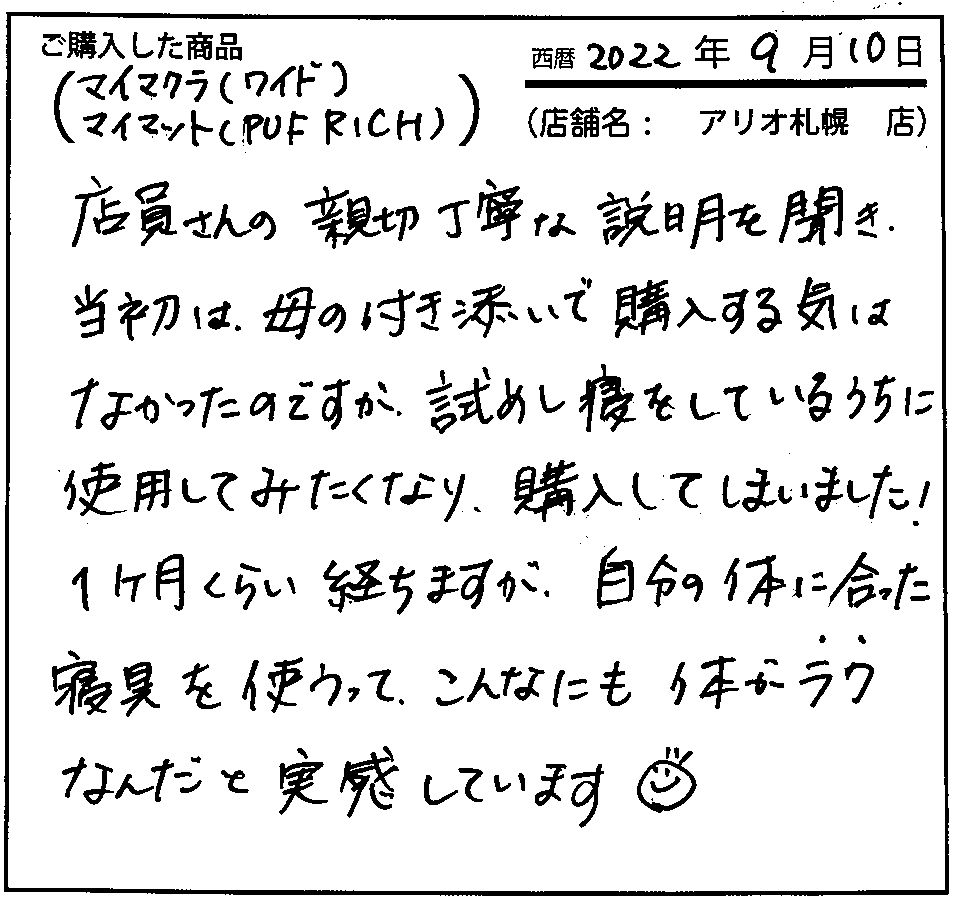 ご購入した商品
西暦 2022 年 9 月 10 日
(マイマクラ(ワイド)
マイマット(PUF RICH))
(店舗名: アリオ札幌 店)
店員さんの親切丁寧な説明を聞き、
当初は、母の付き添いで購入する気は
なかったのですが、試めし寝をしているうちに
使用してみたくなり、購入してしまいました!
1ヶ月くらい経ちますが、自分の体に合った
寝具を使うって、こんなにも体がラク
なんだと実感しています